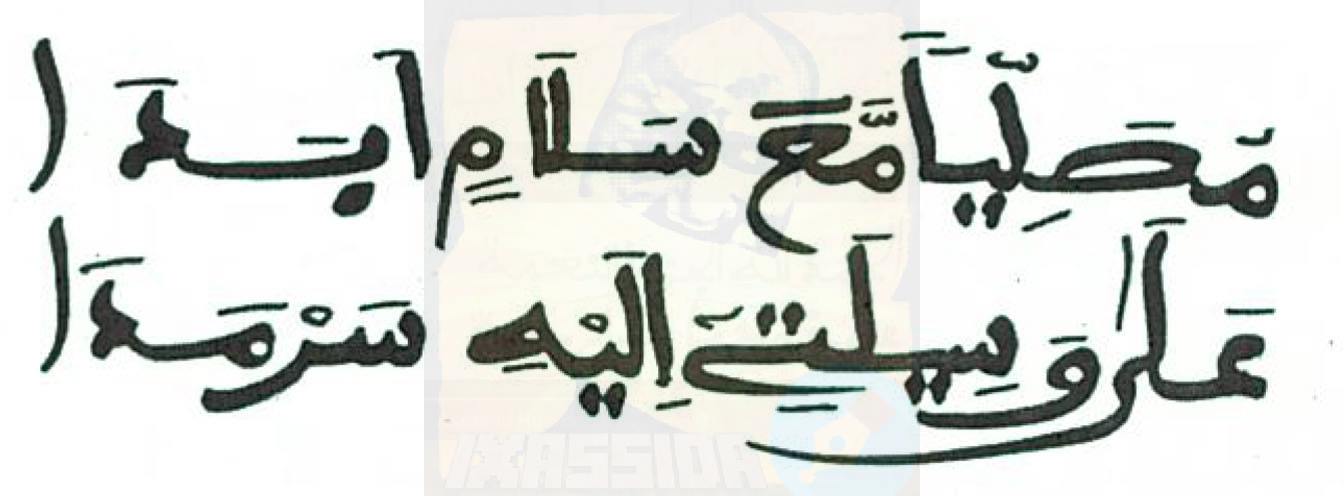 مُصَلِّيًا مَّعَ سَلَامٍ اَبَدَا
عَلَى وَسِيلَتِے إِلَيْهِ سَرْمَدَا
IXASSIDA